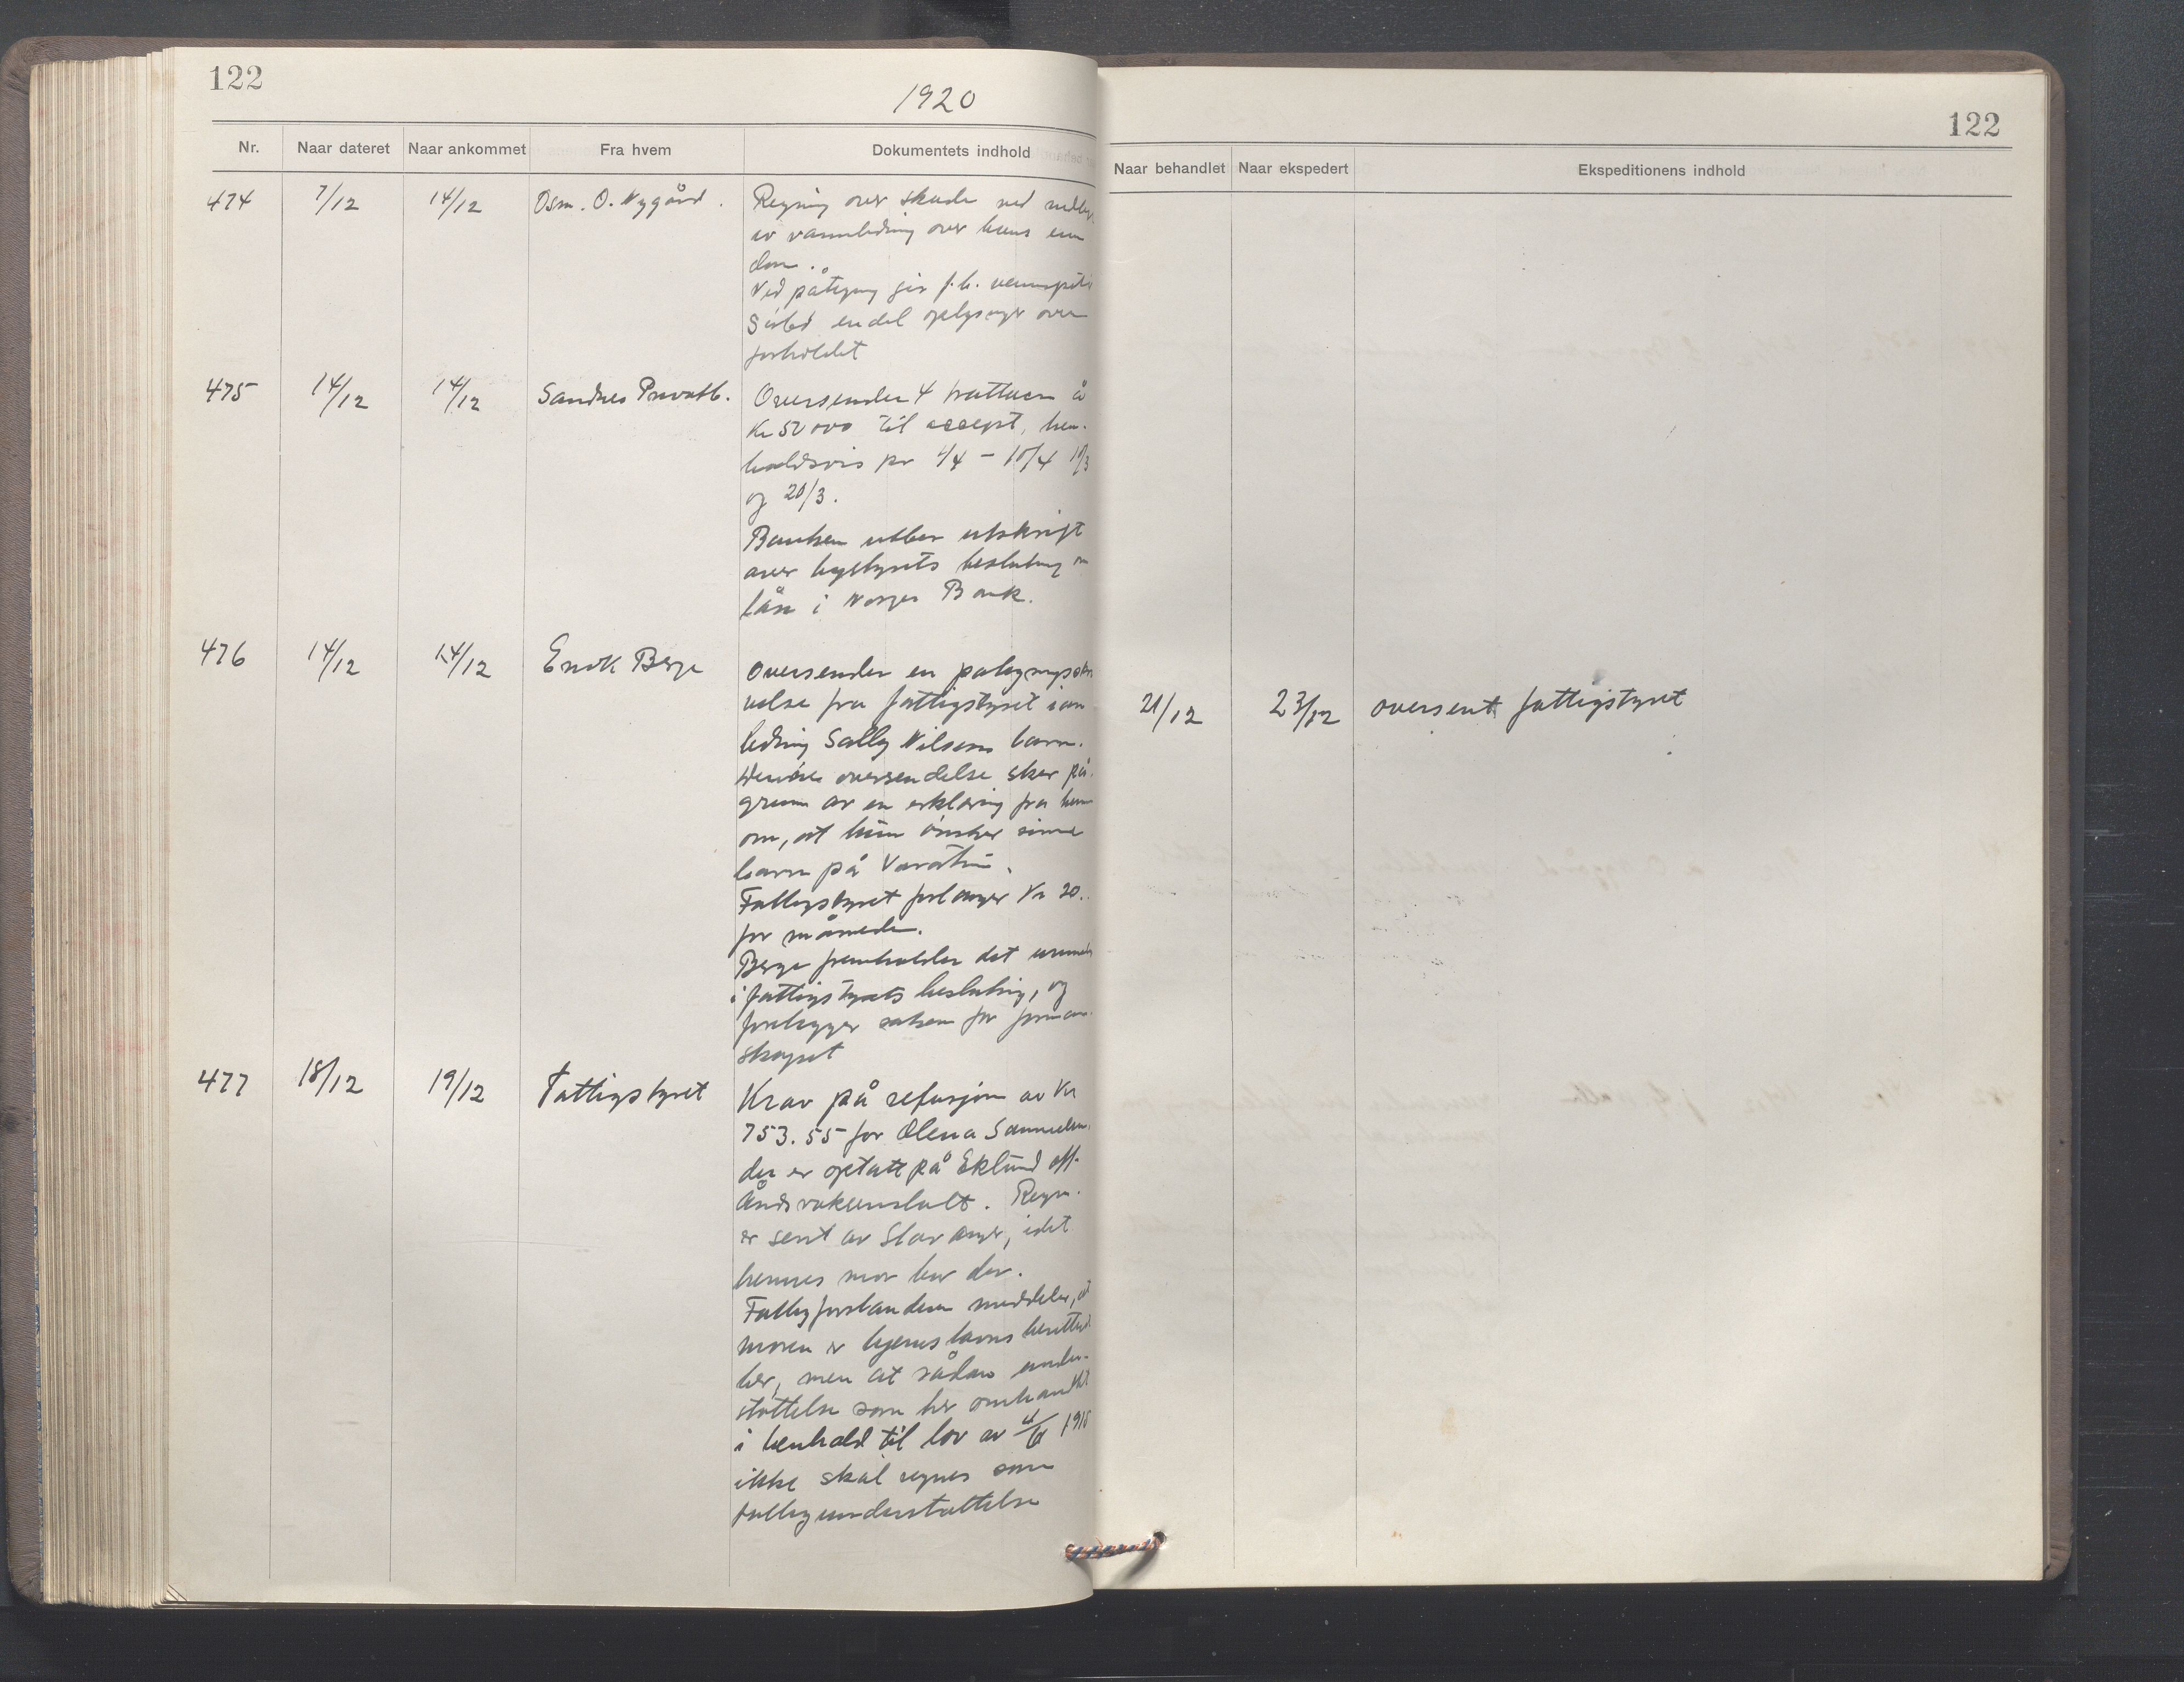 122
1920
Nr. Naar dateret Naar ankommet Fra hvem Dokumentets indhold
474 7/12 14/12 Osm. O. Nygård. Regning over skade ved
av vannledning over hans eien
dom.
Ved påtegning gir f.h.
endel oplysninger over
forholdet
475 14/12 14/12 Sandnes Privatb. Oversender 4 tratter å
Kr 50 000 til accept, hen-
holdsvis pr 1/4 - 10/4 10/3
og 20/3.
Banken utber utskrift
over bystyrets beslutning om
lån i Norges Bank.
476 14/12 14/12 Enok Berge Oversender en
velse fra fattigstyret i an
ledning Sally Nilsens barn.
Denne oversendelse sker på
grunn av en erklæring fra henne
om, at hun ønsker sine
barn på Varatun.
Fattigstyret forlanger Kr 20.
for måneden.
Berge fremholder det
i fattigstyrets beslutning, og
forelegger saken for forman-
skapet
477 18/12 19/12 Fattigstyret Krav på refusjon av Kr
753.55 for Olena Samuelsen.
der er optatt på Eklund off.
åndsvakeanstalt. Regn.
er sent av Stavanger, idet
hennes mor bor der.
Fattigforstanderen meddeler, at
moren er hjemstavnsberettiget
her, men at sådan under-
støttelse som her omhandlet
i henhold til lov av
ikke skal regnes som
fattigunderstøttelse
122
Naar behandlet Naar ekspedert Ekspeditionens indhold
21/12 23/12 oversent fattigstyret